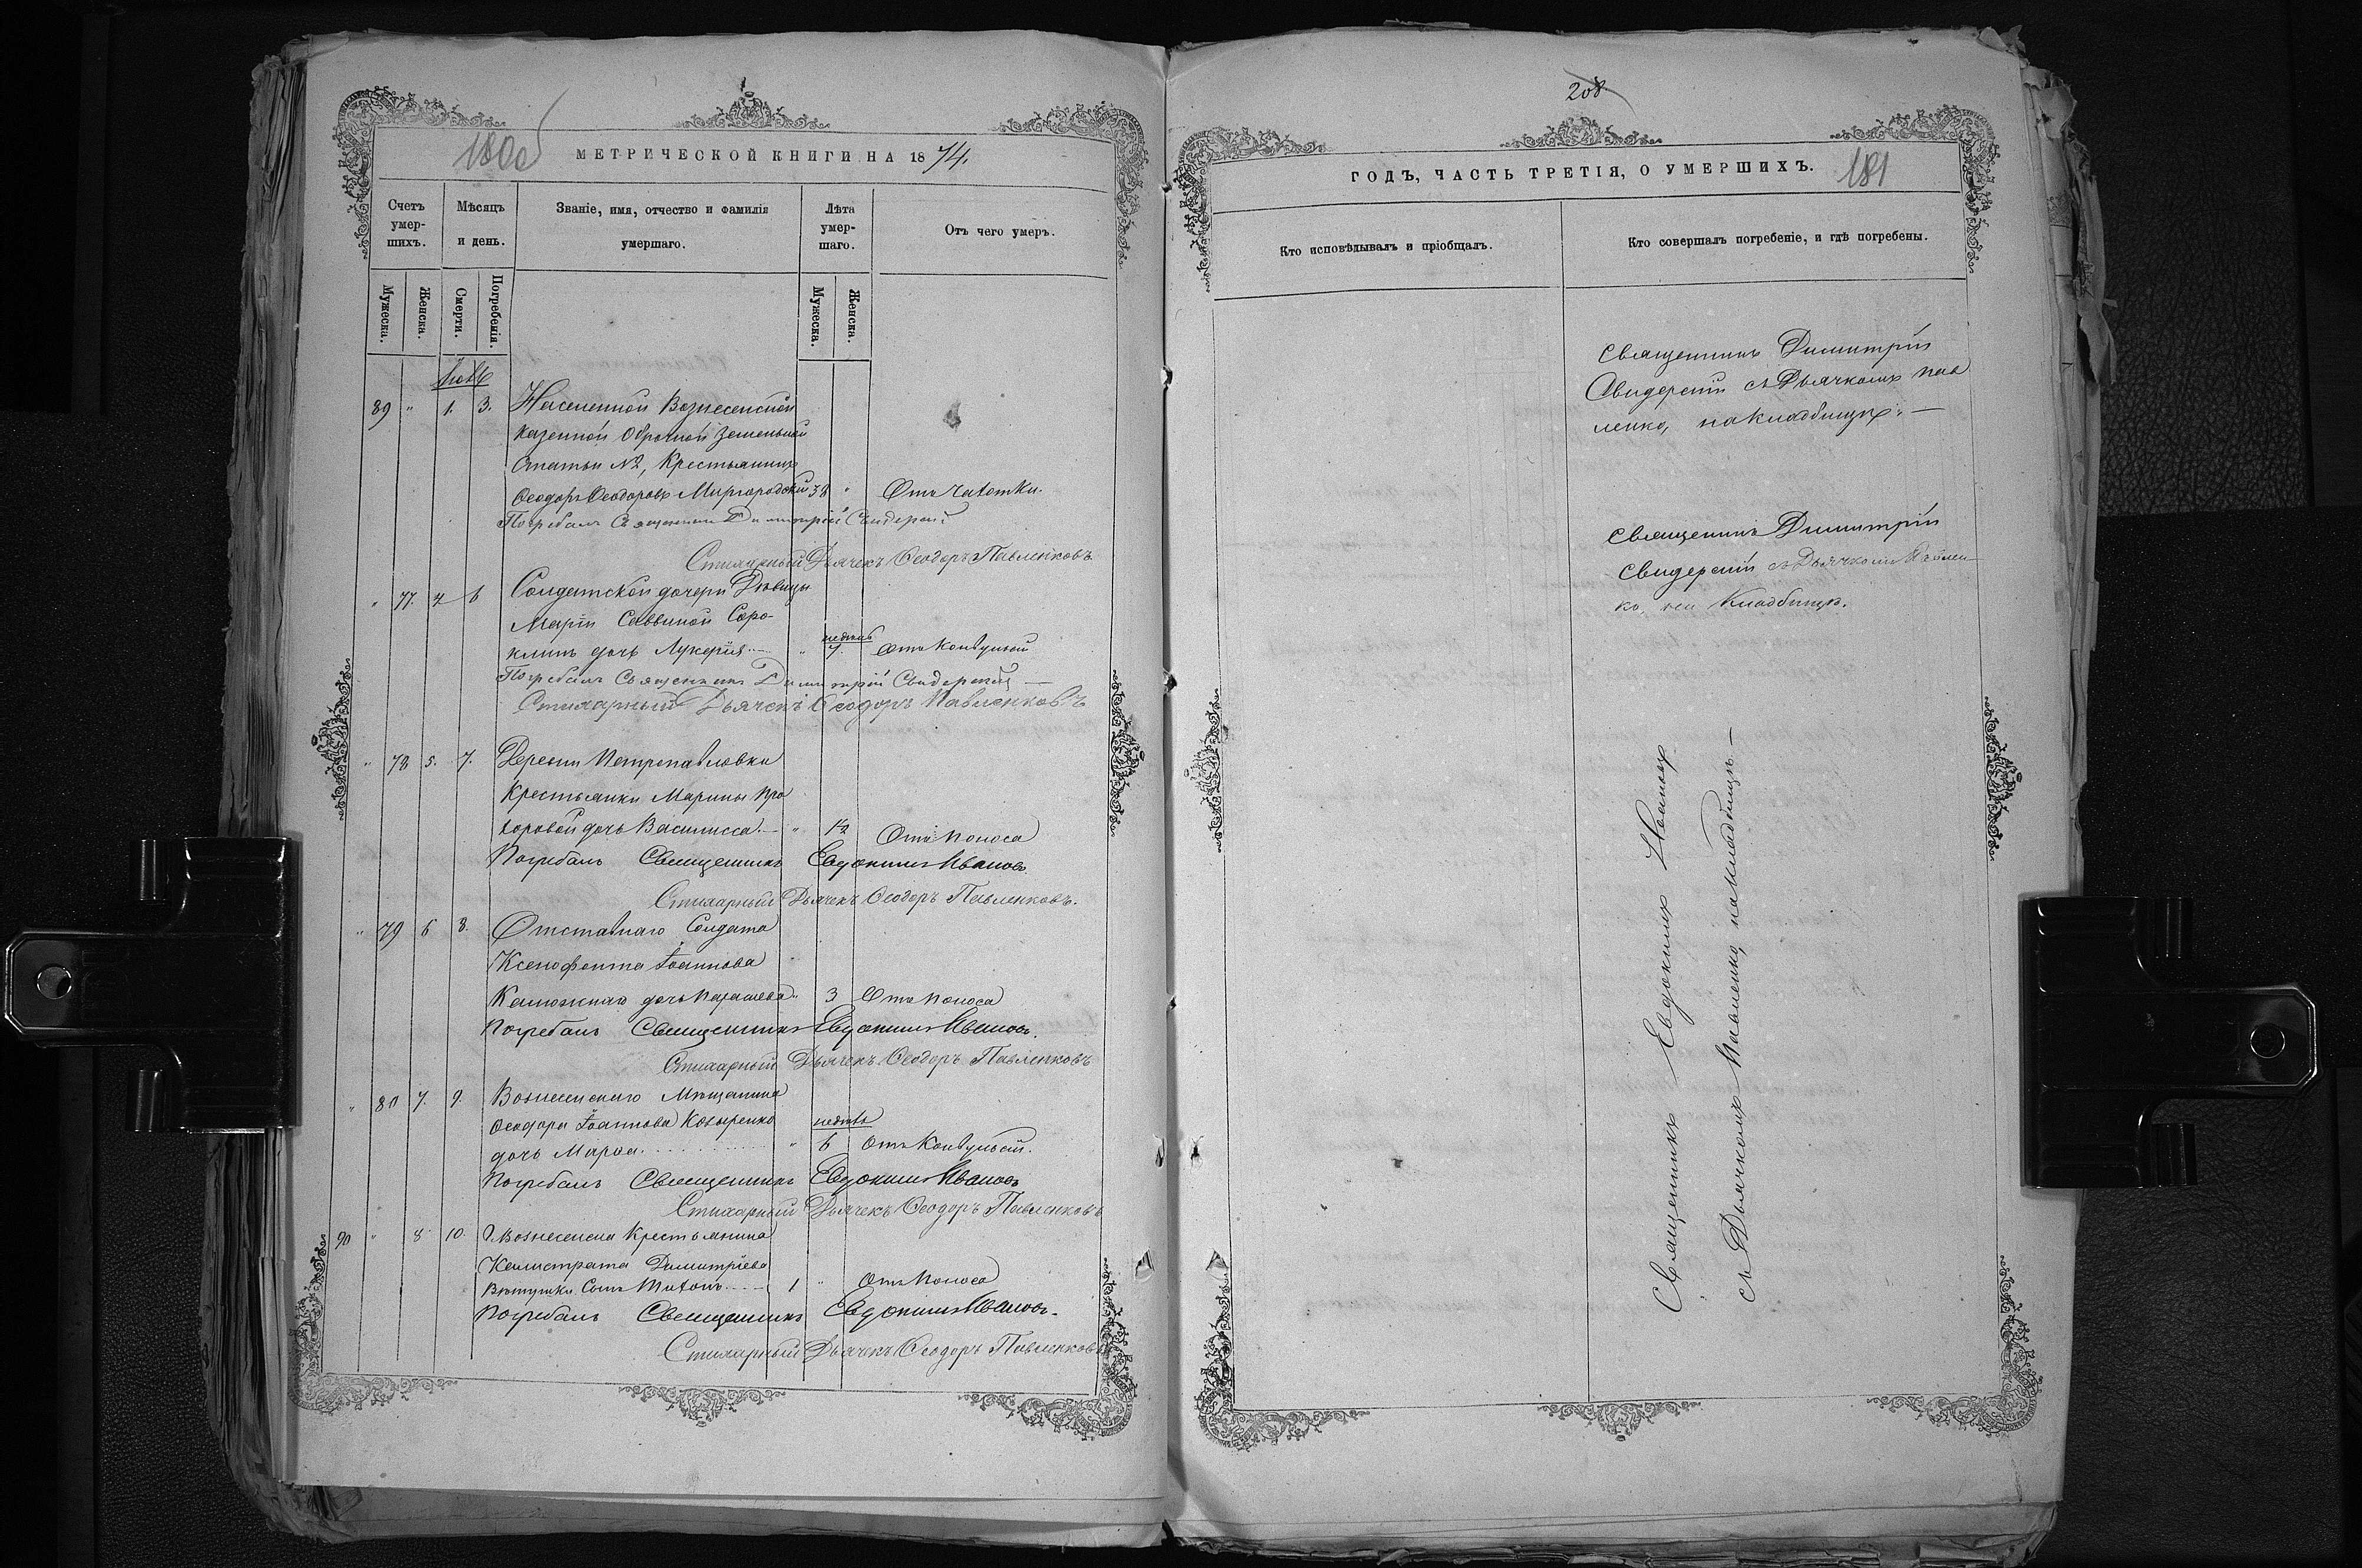 180об
МЕТРИЧЕСКОЙ КНИГИ НА 1874.
Счетъ умер-шихъ.
Мѣсяцъ и день.
Званіе, имя, отчество и фамилія умершаго.
Лѣта умер-шаго.
Отъ чего умеръ.
Мужеска.
Женска.
Смерти.
Погребенія.
Мужеска.
Женска.
Іюль
89 " 1. 3. Населенной Вознесенской
казенной Оброчной Земельной
Статьи №2, Крестьянинъ
Ѳеодоръ Ѳеодоровъ Миргородскій 38 " Отъ чахотки.
Погребалъ Священникъ Димитрій Свидерскій
Стихарный Дьячекъ Ѳеодоръ Павленковъ
" 77. 4 6 Солдатской дочери Дѣвицы
Маріи Саввиной Соро-
клинъ дочь Лукерія " недѣль 7. отъ Конвульсій
Погребалъ Священникъ Димитрій Свидерскій
Стихарный Дьячекъ Ѳеодоръ Павленковъ
" 78 5. 7. Деревни Петропавловки
Крестьянки Марины Про
хоровой дочь Василисса " 1/2 Отъ поноса
Погребалъ Священникъ Евдокимъ Ивановъ
Стихарный Дьячекъ Ѳеодоръ Павленковъ.
" 79 6 8. Отставнаго Солдата
Ксенофонта Іоаннова
Калюжнаго дочь Парасева " 3 Отъ поноса
Погребалъ Священникъ Евдокимъ Ивановъ
Стихарный Дьячекъ Ѳеодоръ Павленковъ
" 80 7. 9. Вознесенскаго Мѣщанина
Ѳеодора Іоаннова Козыренко
дочь Марѳа " недѣль 6 отъ Конвульсій.
Погребалъ Священникъ Евдокимъ Ивановъ
Стихарный Дьячекъ Ѳеодоръ Павленковъ
90 " 8 10. Вознесенска Крестьянина
Калистрата Димитріева
сынъ Тихонъ 1 " Отъ поноса
Погребалъ Священникъ Евдокимъ Ивановъ
Стихарный Дьячекъ Ѳеодоръ Павленковъ
208
ГОДЪ, ЧАСТЬ ТРЕТІЯ, О УМЕРШИХЪ.
181
Кто исповѣдывалъ и пріобщалъ.
Кто совершалъ погребеніе, и гдѣ погребены.
Священникъ Димитрій
Свидерскій съ Дьячкомъ Пав
ленко, на кладбищѣ. —
Священникъ Димитрій
Свидерскій съ Дьячкомъ Павлен-
ко, на Кладбищѣ.
Священникъ Евдокимъ Ивановъ
съ Дьячкомъ Павленко, на кладбищѣ —